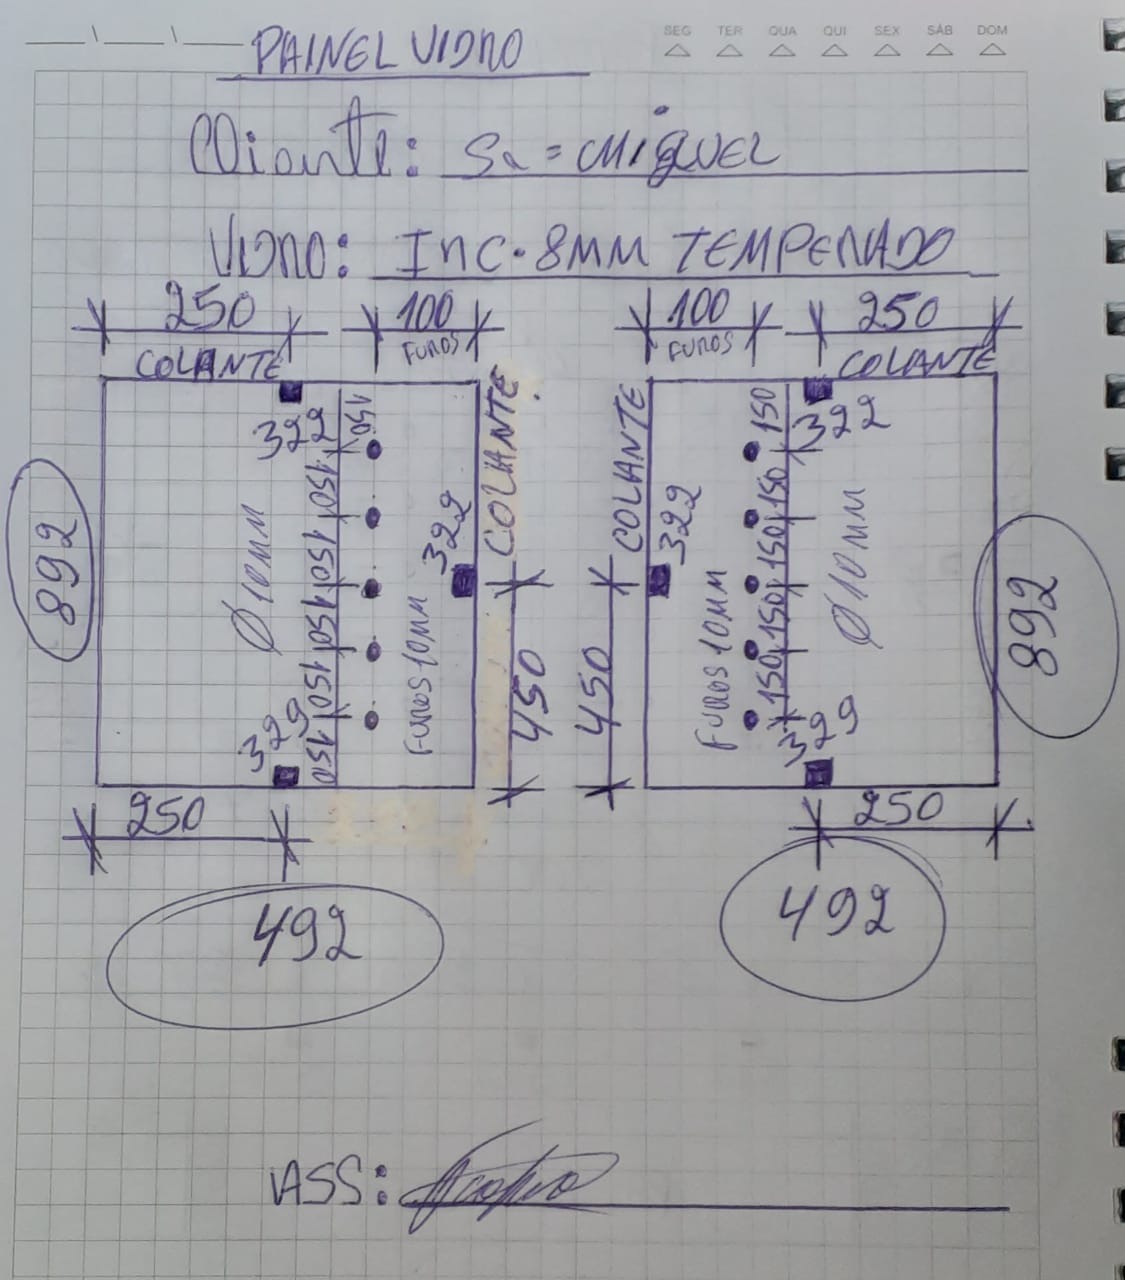 SEG TER QUA QUI SEX SÁB DOM
PAINEL VIDRO
Cliante: Sr = MIGUEL
VIDRO: INC. 8MM TEMPERADO
250 100 FUROS
COLANTE
COLANTE
322
322
329
150
150
150
150
150
150
Ø 10MM
FUROS 10MM
892
450
250
492
100 FUROS 250
COLANTE
COLANTE
322
322
329
150
150
150
150
150
FUROS 10MM
Ø 10MM
892
450
250
492
ASS: